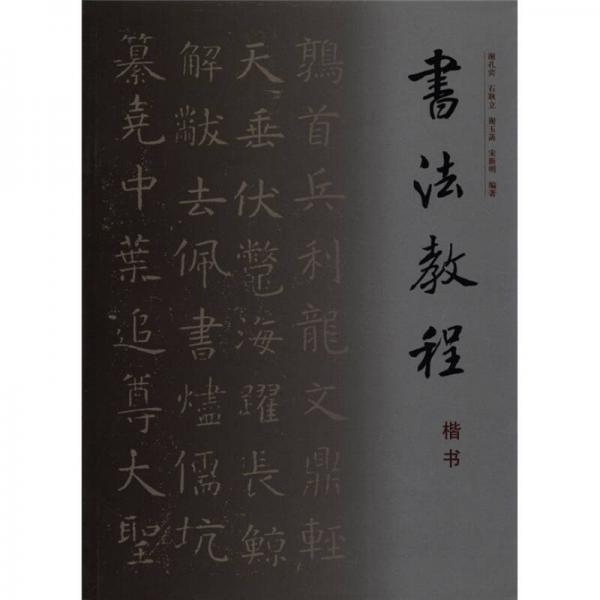 谢孔宾 石耿立 谢玉 明 编著
書法教程
楷书
鶉首兵利龍文鼎輕
天垂伏鼈海躍長鯨
解黻去佩書燼儒坑
纂堯中葉追尊大聖